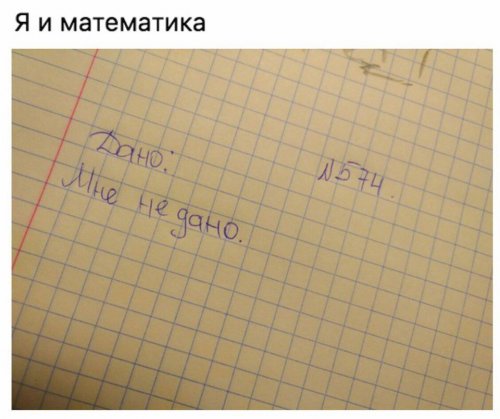 Я и математика
Дано:
№574.
Мне не дано.